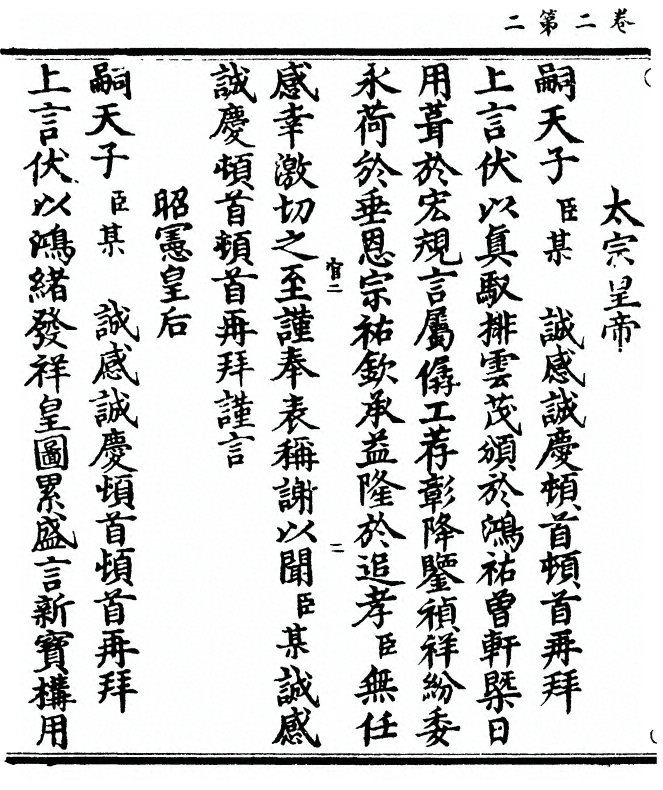 卷二第二
太宗皇帝
嗣天子臣某 誠感誠慶頓首頓首再拜
上言伏以真馭排雲茂頒於鴻祐曾軒槩日
用葺於宏規言屬僝工荐彰降鑒禎祥紛委
永荷於垂恩宗祐欽承益隆於追孝臣無任
感幸激切之至謹奉表稱謝以聞臣某誠感
誠慶頓首頓首再拜謹言
昭憲皇后
嗣天子臣某 誠感誠慶頓首頓首再拜
上言伏以鴻緒發祥皇圖累盛言新寶構用